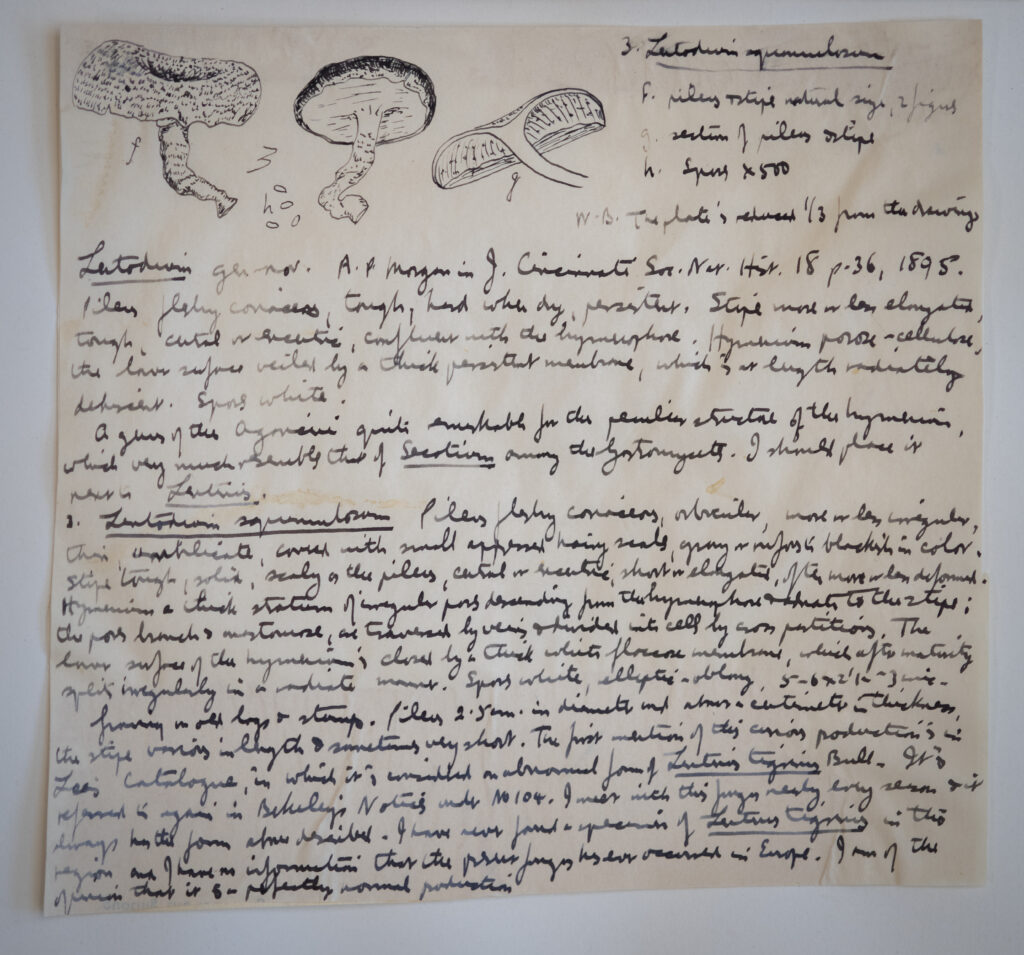 3. Lentodium squamulosum
f. pileus & stipe natural size, 2 figures
g. section of pileus & stipe
h. Spores x500
f
3
h
g
N.B. The plate is reduced 1/3 from the drawings
Lentodium gen. nov. A.P. Morgan in J. Cincinnati Soc. Nat. Hist. 18 p. 36, 1895.
Pileus fleshy coriaceous, tough, hard when dry, persistent. Stipe more or less elongated,
tough, central or excentric, confluent with the hymenophore. Hymenium porose-cellulose,
the lower surface veiled by a thick persistent membrane, which is at length radiately
dehiscent. Spores white.
A genus of the Agaricini quite remarkable for the peculiar structure of the hymenium,
which very much resembles that of Secotium among the Gastomycetes. I should place it
next to Lentinus.
3. Lentodium squamulosum Pileus fleshy coriaceous, orbicular, more or less irregular,
thin, umbilicate, covered with small appressed hairy scales, gray or rufous to blackish in color.
Stipe tough, solid, scaly as the pileus, central or excentric, short or elongated, often more or less deformed.
Hymenium a thick stratum of irregular pores descending from the hymenophore & adnate to the stipe;
the pores branch & anastomose, are traversed by veins & divided into cells by cross partitions. The
lower surface of the hymenium is closed by a thick white floccose membrane, which after maturity
splits irregularly in a radiate manner. Spores white, elliptic-oblong, 5-6 x 2½-3 mic.
Growing on old logs & stumps. Pileus 2-5 cm. in diameter and about a centimeter in thickness,
the stipe various in length & sometimes very short. The first mention of this curious production is in
Lea's Catalogue, in which it is considered an abnormal form of Lentinus tigrinus Bull. It is
referred to again in Berkeley's Notices under No 104. I meet with this fungus nearly every season & it
always has the form above described. I have never found a specimen of Lentinus tigrinus in this
region and I have no information that the present fungus has ever occurred in Europe. I am of the
opinion that it is a perfectly normal production